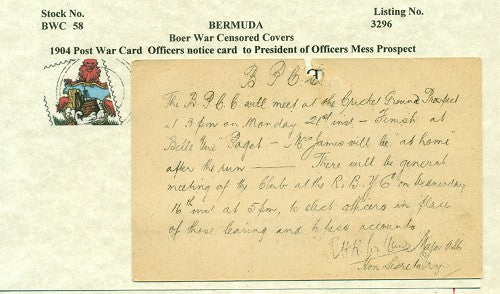 Stock No.
BWC 58
BERMUDA
Listing No.
3296
Boer War Censored Covers
1904 Post War Card Officers notice card to President of Officers Mess Prospect
The B.P.C.C. will meet at the Cricket Ground Prospect
at 3 pm on Monday 21st inst - Finish at
Belle Vue Paget - Mrs James will be "at home"
after the run — There will be general
meeting of the Club at the R.B.Y.C. on Wednesday
16th inst at 5 pm, to elect officers in place
of those leaving and to pass accounts
Major
Hon Secretary